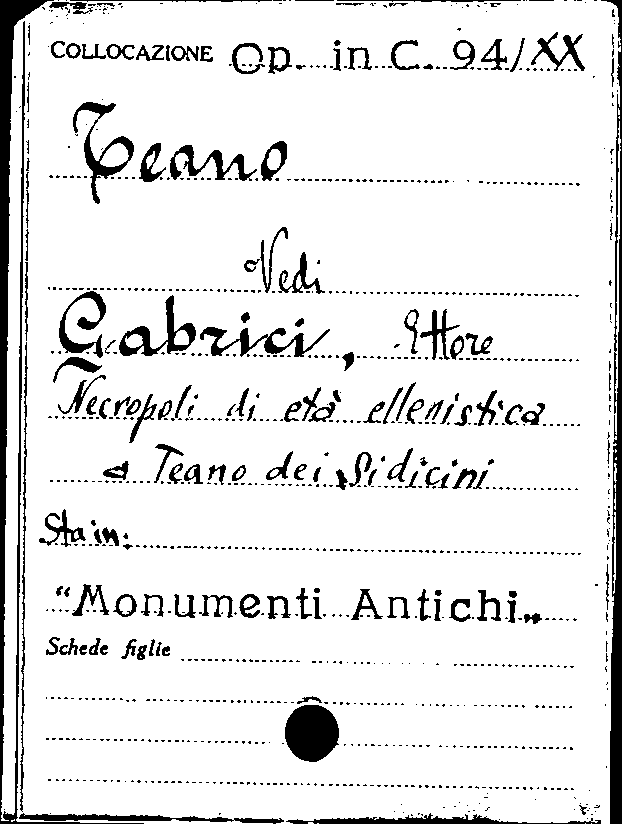 COLLOCAZIONE Op. in C. 94/XX
Teano
Vedi
Gabrici, Ettore
Necropoli di età ellenistica
a Teano dei Sidicini
Sta in:
“Monumenti Antichi„
Schede figlie